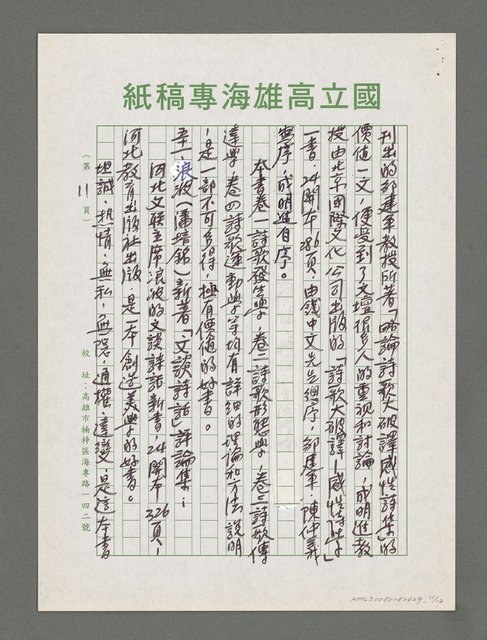 國立高雄海專稿紙
刊出的鄒建軍教授所著「略論詩歌大破譯感性詩集」的
價值一文,便受到了文壇很多人的重視和討論,成明進教
授由北京國際文化公司出版的「詩歌大破譯—感性詩學」
一書,24開本,286頁,由錢中文先生總序,鄒建軍、陳仲義
各序,成明進自序。
本書卷一詩歌發生學,卷二詩歌形態學,卷三詩歌傳
達學,卷四詩歌運動學等均有詳細的理論和方法說明
,是一部不可多得,極有價值的好書。
浪波(潘培銘)新著「文談詩話」評論集:
河北文聯主席浪波的文談詩話新書,24開本326頁,
河北教育出版社出版,是一本創造美學的好書。
坦誠,熱情,無私,無隱,通權,達變,是這本書
(第 11 頁)
校址:高雄市楠梓區海專路一四二號
NMTL20080182429. 11/12